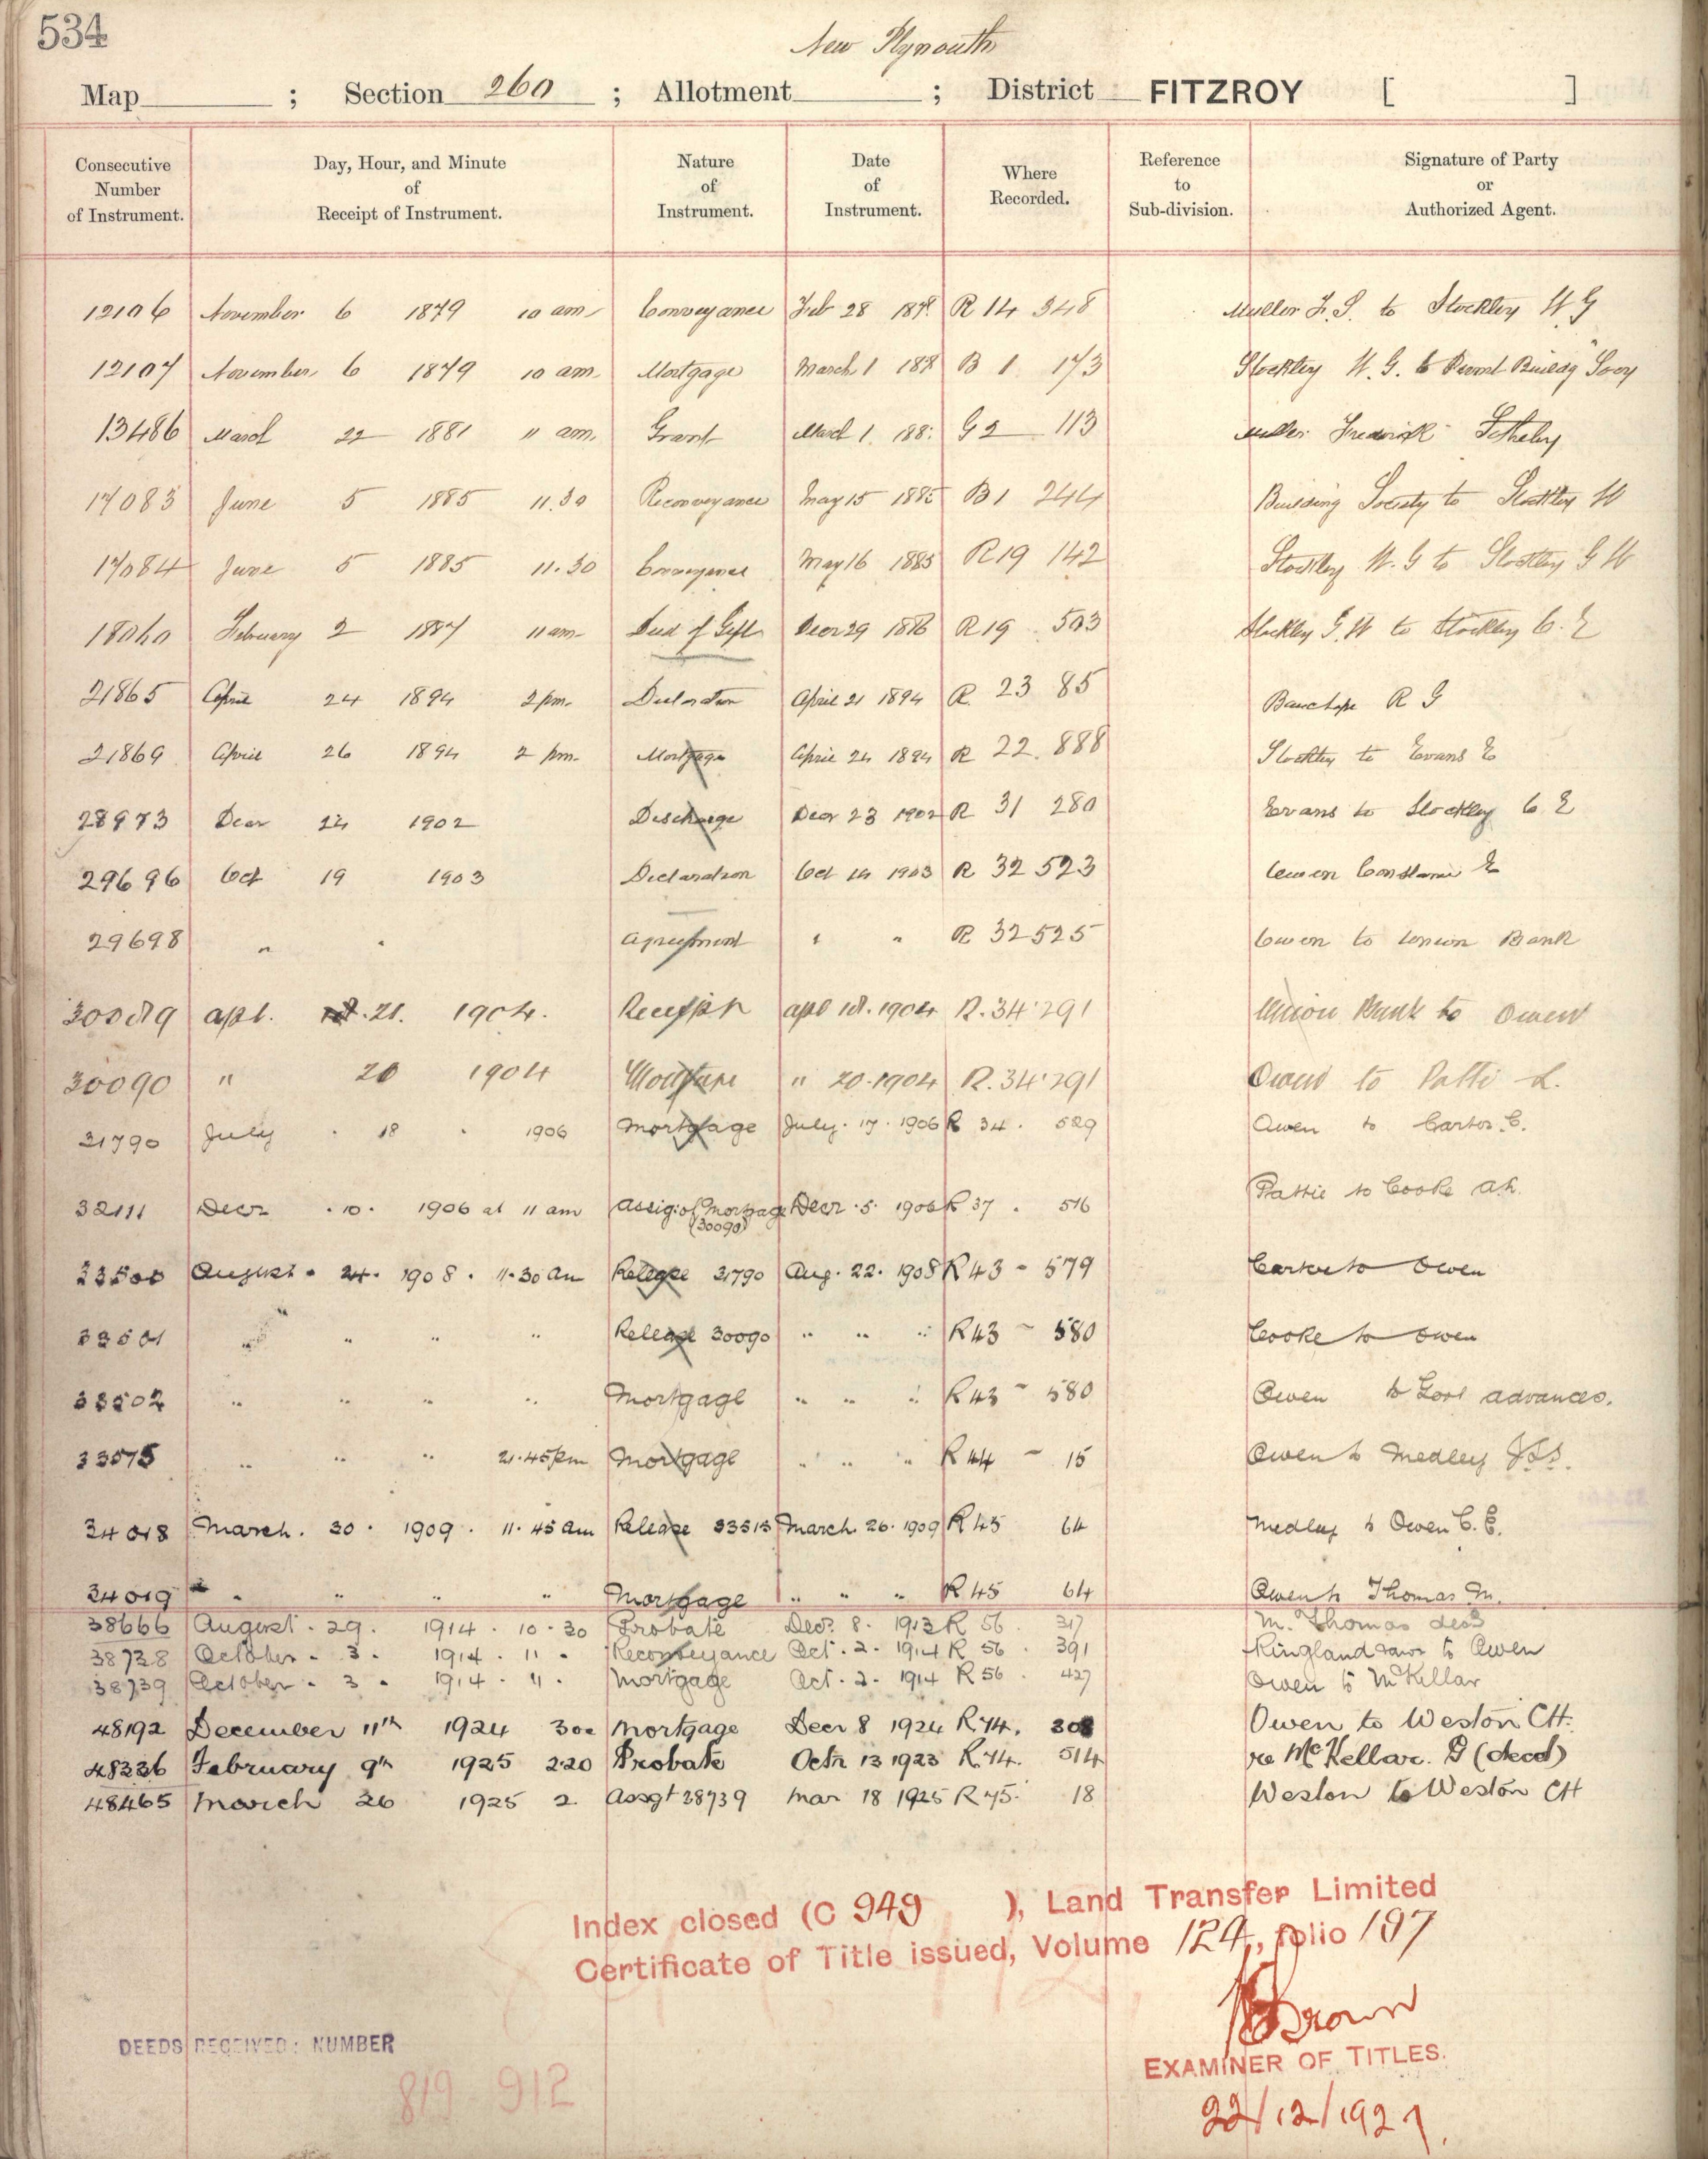 534
New Plymouth
Map ; Section 260 ; Allotment ; District FITZROY [ ]
Consecutive Number of Instrument. Day, Hour, and Minute of Receipt of Instrument. Nature of Instrument. Date of Instrument. Where Recorded. Reference to Sub-division. Signature of Party or Authorized Agent.
12106 November 6 1879 10 am Conveyance Feb 28 187 R 14 348 Muller F. S. to Stockley W G
12107 November 6 1879 10 am Mortgage March 1 187 B 1 173 Stockley W. G. to Permt Buildg Socy
13486 March 22 1881 11 am. Grant March 1. 188 G 2 113 Muller Frederick
17083 June 5 1885 11.30 Reconveyance May 15 1885 B1 244 Building Society to Stockley W
17084 June 5 1885 11.30 Conveyance May 16 1885 R19 142 Stockley W. G to Stockley G W
18060 February 2 1887 11 am Deed of Gift Decr 29 1886 R19 503 Stockley G. W to Stockley C. E
21865 April 24 1894 2 pm. Declaration April 21 1894 R. 23 85 Bauchope R G
21869 April 26 1894 2 pm. Mortgage April 24 1894 R 22. 888 Stockley to Evans E
28973 Decr 24 1902 Discharge Decr 23 1902 R 31 280 Evans to Stockley C. E
29696 Oct 19 1903 Declaration Oct 14 1903 R 32 523 Owen Constance E
29698 " " Agreement " " R 32 525 Owen to Union Bank
30089 apl. 21. 1904. Receipt apl 18. 1904 R. 34 291 Union Bank to Owen
30090 " 20 1904 Mortgage " 20. 1904 R. 34 291 Owen to Patti L.
31790 July 18 1906 Mortgage July. 17. 1906 R 34. 529 Owen to Carter. C.
32111 Decr .10. 1906 at 11 am Assig: of Mortgage Decr .5. 1906 R 37 . 516 Pattie to Cooke A.H.
(30090)
33500 August. 24. 1908. 11.30 am Release 31790 Aug. 22. 1908 R 43 - 579 Carter to Owen
33501 " " " " Release 30090 " " " R43 - 580 Cooke to Owen
33502 " " " " Mortgage " " " R43 - 580 Owen to Govt Advances.
33515 " " " 2.45 pm Mortgage " " " R 44 - 15 Owen to Medley
34018 March. 30. 1909. 11. 45 am Release 33515 March 26. 1909 R 45 64 Medley to Owen C. E.
34019 " " " " Mortgage " " " R 45 64 Owen to Thomas M.
38666 August. 29. 1914. 10.30 Probate Decr. 8. 1913 R 56. 317 M. Thomas decd
38738 October. 3. 1914. 11. Reconveyance Oct. 2. 1914 R 56. 391 Kingland & anr to Owen
38739 October. 3 1914. 11. Mortgage Oct. 2. 1914 R 56. 427 Owen to McKellar
48192 December 11th 1924 3oc Mortgage Decr 8 1924 R.74. 308 Owen to Weston CH.
48336 February 9th 1925 2.20 Probate Octr 13 1923 R.74. 514 re McKellar. D (decd)
48465 March 26 1925 2 Assgt 38739 Mar 18 1925 R 75. 18 Weston to Weston CH
Index closed (C 949 ), Land Transfer Limited
Certificate of Title issued, Volume 124, folio 197
Brown
EXAMINER OF TITLES.
22/12/1927.
DEEDS RECEIVED: NUMBER
819 912